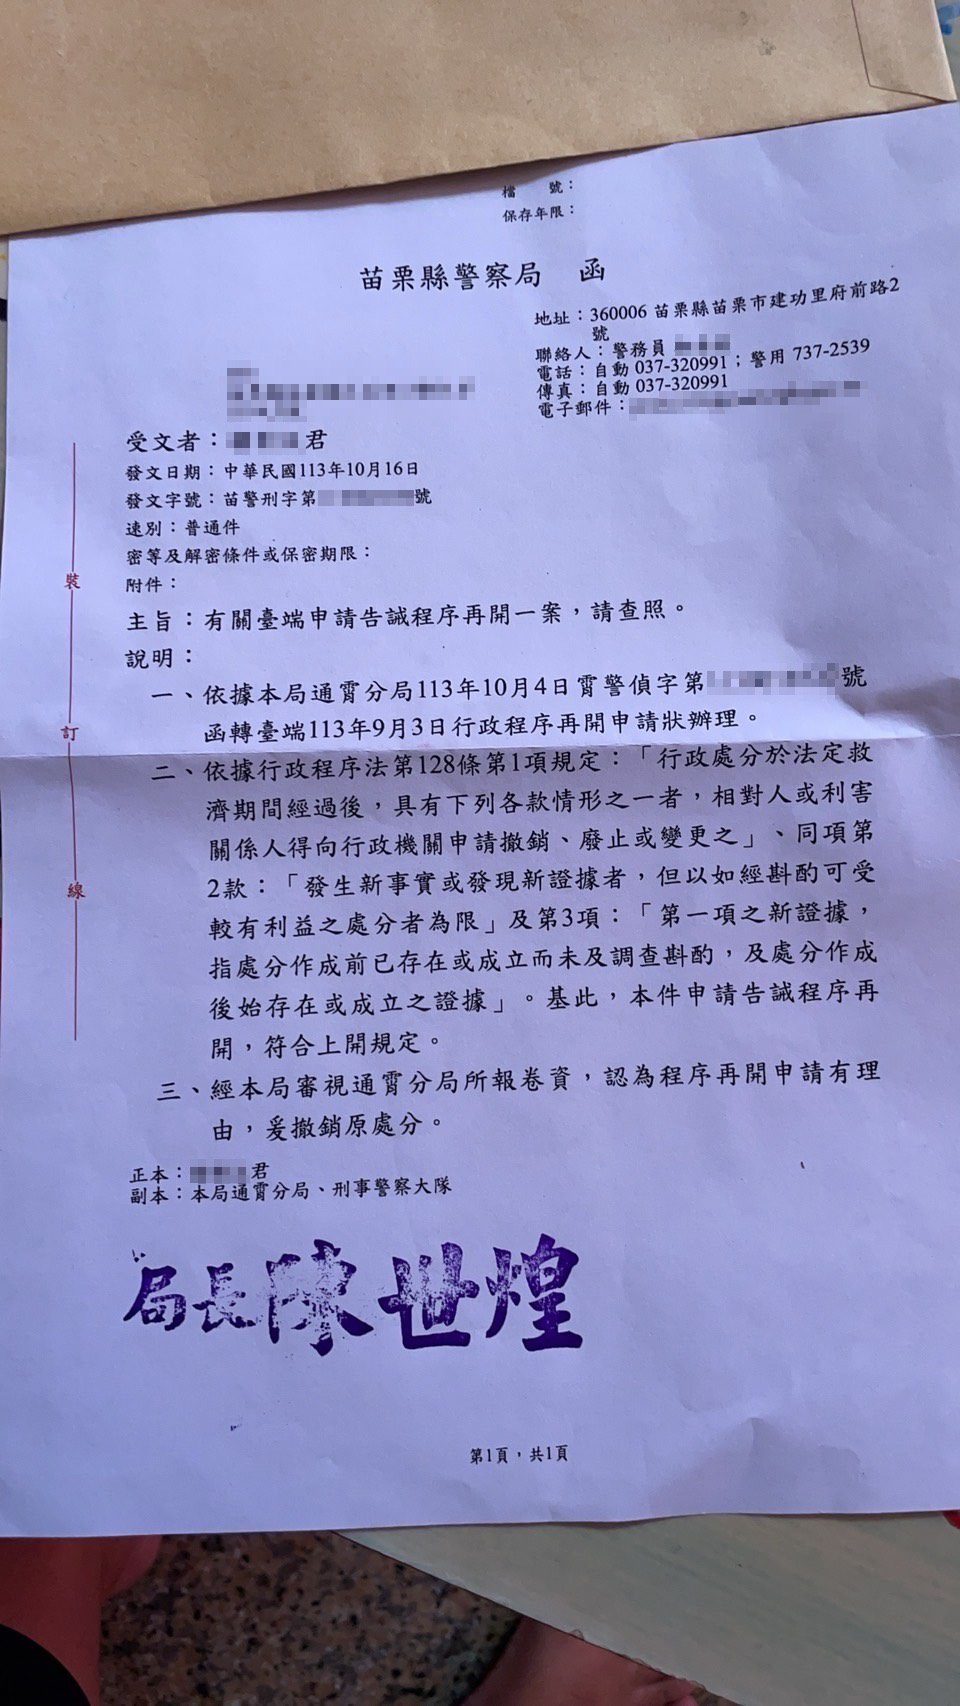 檔　　號：
保存年限：
苗栗縣警察局　函
地址：360006 苗栗縣苗栗市建功里府前路2
號
聯絡人：警務員
電話：自動 037-320991；警用 737-2539
傳真：自動 037-320991
電子郵件：
受文者：君
發文日期：中華民國113年10月16日
發文字號：苗警刑字第號
速別：普通件
密等及解密條件或保密期限：
附件：
主旨：有關臺端申請告誡程序再開一案，請查照。
說明：
一、依據本局通霄分局113年10月4日霄警偵字第號
函轉臺端113年9月3日行政程序再開申請狀辦理。
二、依據行政程序法第128條第1項規定：「行政處分於法定救
濟期間經過後，具有下列各款情形之一者，相對人或利害
關係人得向行政機關申請撤銷、廢止或變更之」、同項第
2款：「發生新事實或發現新證據者，但以如經斟酌可受
較有利益之處分者為限」及第3項：「第一項之新證據，
指處分作成前已存在或成立而未及調查斟酌，及處分作成
後始存在或成立之證據」。基此，本件申請告誡程序再
開，符合上開規定。
三、經本局審視通霄分局所報卷資，認為程序再開申請有理
由，爰撤銷原處分。
正本：君
副本：本局通霄分局、刑事警察大隊
局長陳世煌
裝
訂
線
第1頁，共1頁